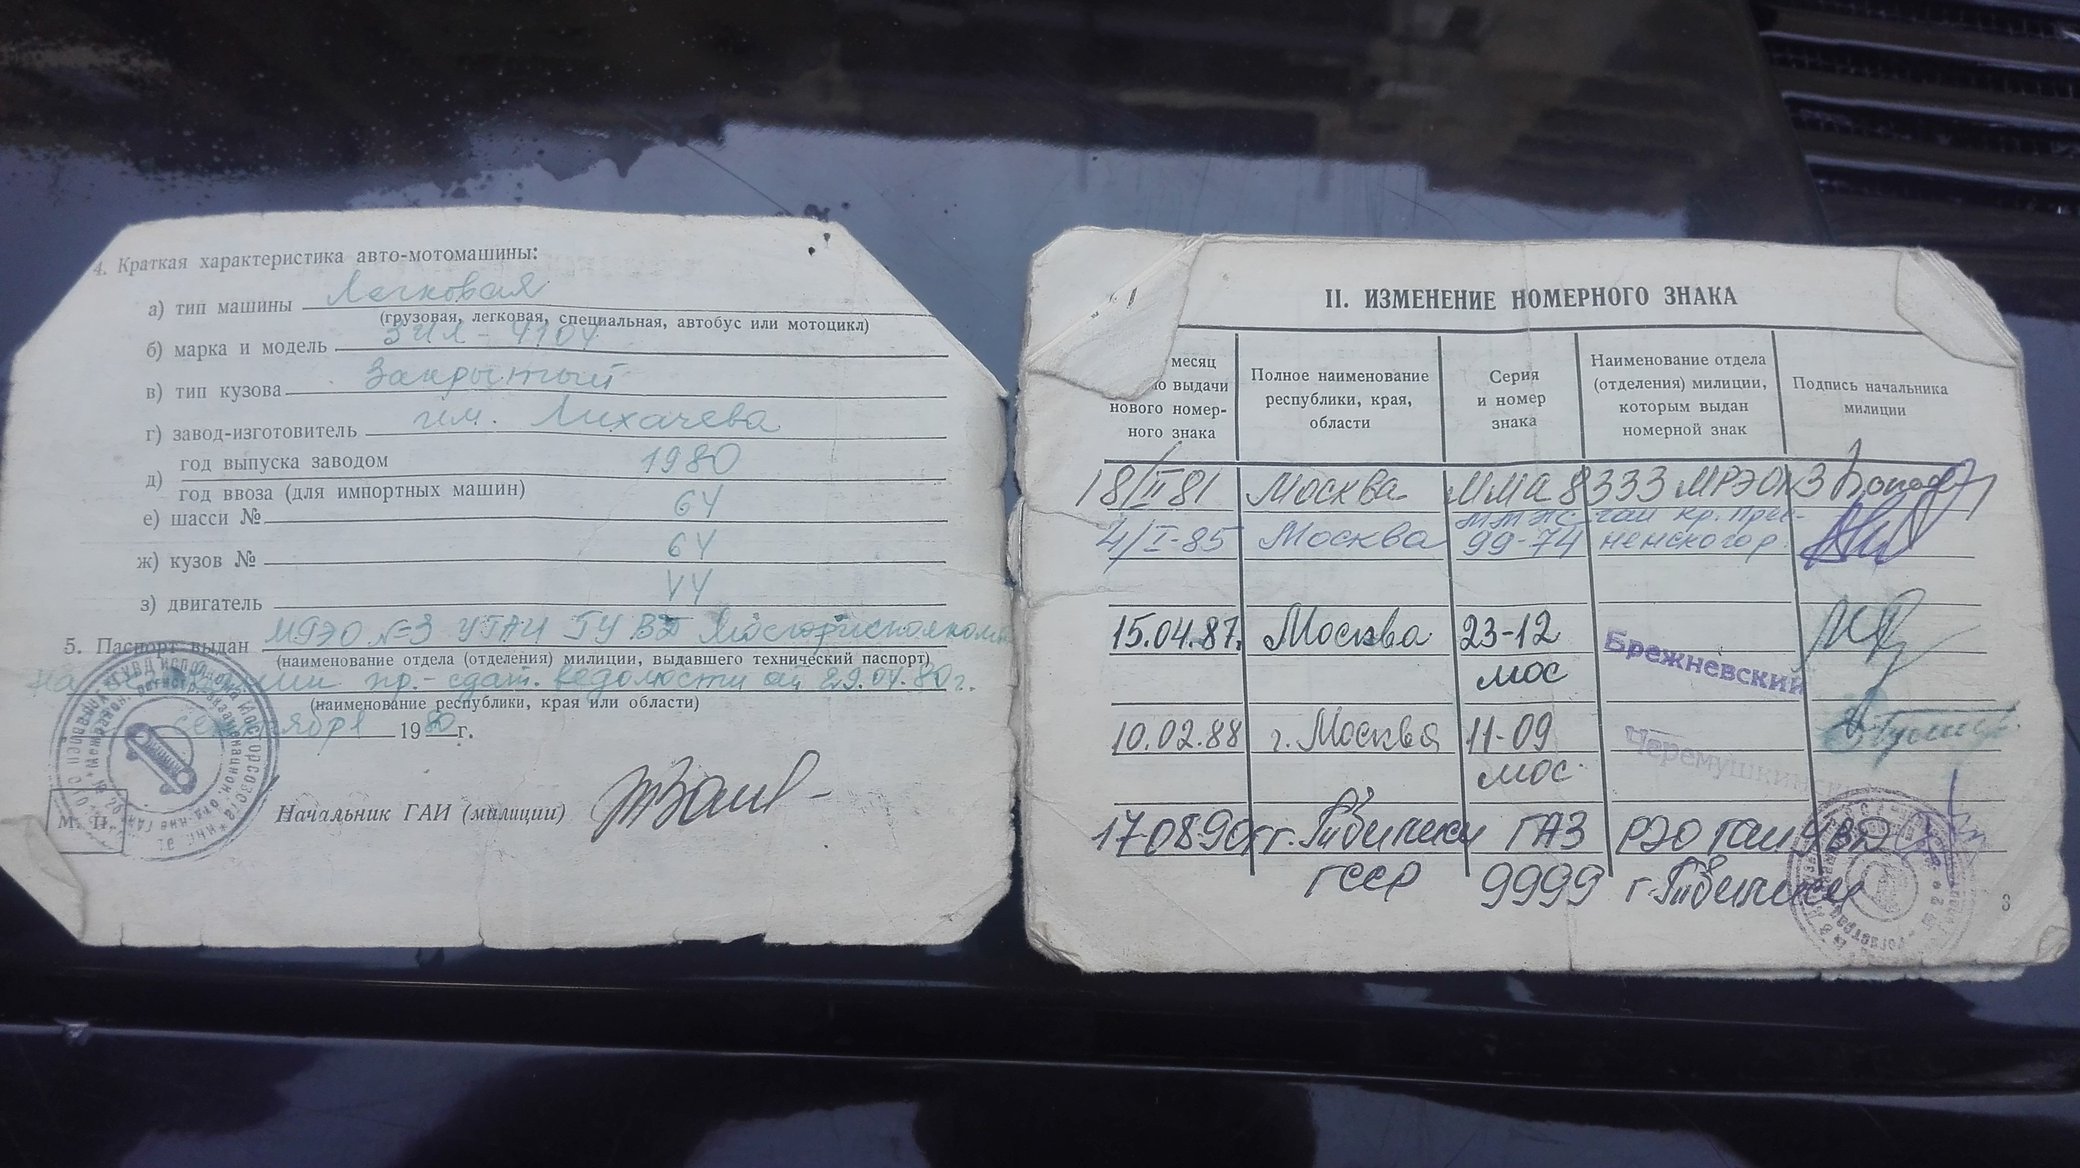 4. Краткая характеристика авто-мотомашины:
а) тип машины Легковая
(грузовая, легковая, специальная, автобус или мотоцикл)
б) марка и модель ЗИЛ-4104
в) тип кузова Закрытый
г) завод-изготовитель им. Лихачева
д) год выпуска заводом 1980
год ввоза (для импортных машин)
е) шасси № 64
ж) кузов № 64
з) двигатель V4
5. Паспорт выдан МРЭО №3 УГАИ ГУВД Мосгорисполкома
(наименование отдела (отделения) милиции, выдавшего технический паспорт)
на пр.-сдат. ведомости от 29.04.80г.
(наименование республики, края или области)
сентября 1980 г.
М. П.
Начальник ГАИ (милиции)
II. ИЗМЕНЕНИЕ НОМЕРНОГО ЗНАКА
месяц
выдачи
нового номер-
ного знака
Полное наименование
республики, края,
области
Серия
и номер
знака
Наименование отдела
(отделения) милиции,
которым выдан
номерной знак
Подпись начальника
милиции
18/II 81 Москва ММА 8333 МРЭО 3
4/I-85 Москва 99-74 ГАИ Кр. Прес-
ненского р.
15.04.87. Москва 23-12
МОС
Брежневский
10.02.88 г. Москва 11-09
МОС
Черемушкинский
170890 г. Тбилиси ГАЗ РЭО ГАИ УВД
ГССР 9999 г. Тбилиси
3